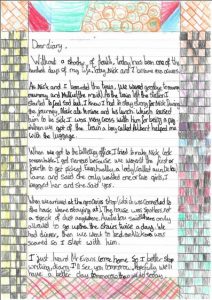 Dear diary,
Without a shadow of doubt, today has been one of the
worst days of my life. Today, Nick and I became evacuees.
As Nick and I boarded the train, we waved goodbye to
mummy and the maid. As the train left the station I
started to feel sad but I knew I had to stay strong for Nick. During
the journey, Nick ate his and his lunch which caused
him to be sick. I was very cross with him for being a pig.
When we got off the train a boy called Albert helped me
with the luggage.
When we got to the I tried to make Nick look
presentable. I got nervous because we weren't the first or
fourth to get picked. Eventually a lady called auntie Lou
came and said she only wanted one or two girls. I
begged her and she said yes.
When we arrived at the grocers shop (which was connected to
the house we're staying at). The house was spotless not
a speck of dust anywhere. Auntie Lou said we were only
allowed to go up the stairs twice a day. We
had dinner, then we went to bed. Nick was
scared so I slept with him.
I just heard Mr Evans come home. So I better stop
writing diary. I'll see you tomorrow. Hopefully we'll
have a better day tomorrow than we did today.